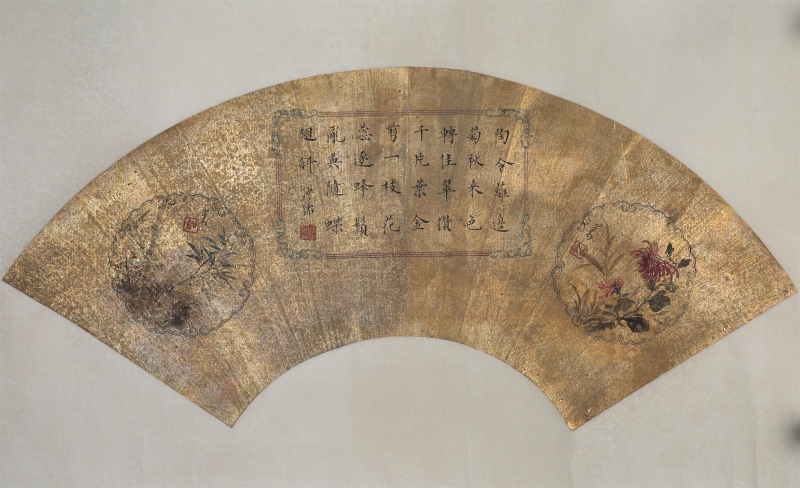 陶令籬邊
菊秋來色
轉佳翠攢
千片葉金
剪一枝花
蕊逐蜂鬚
亂英隨蝶
翅斜